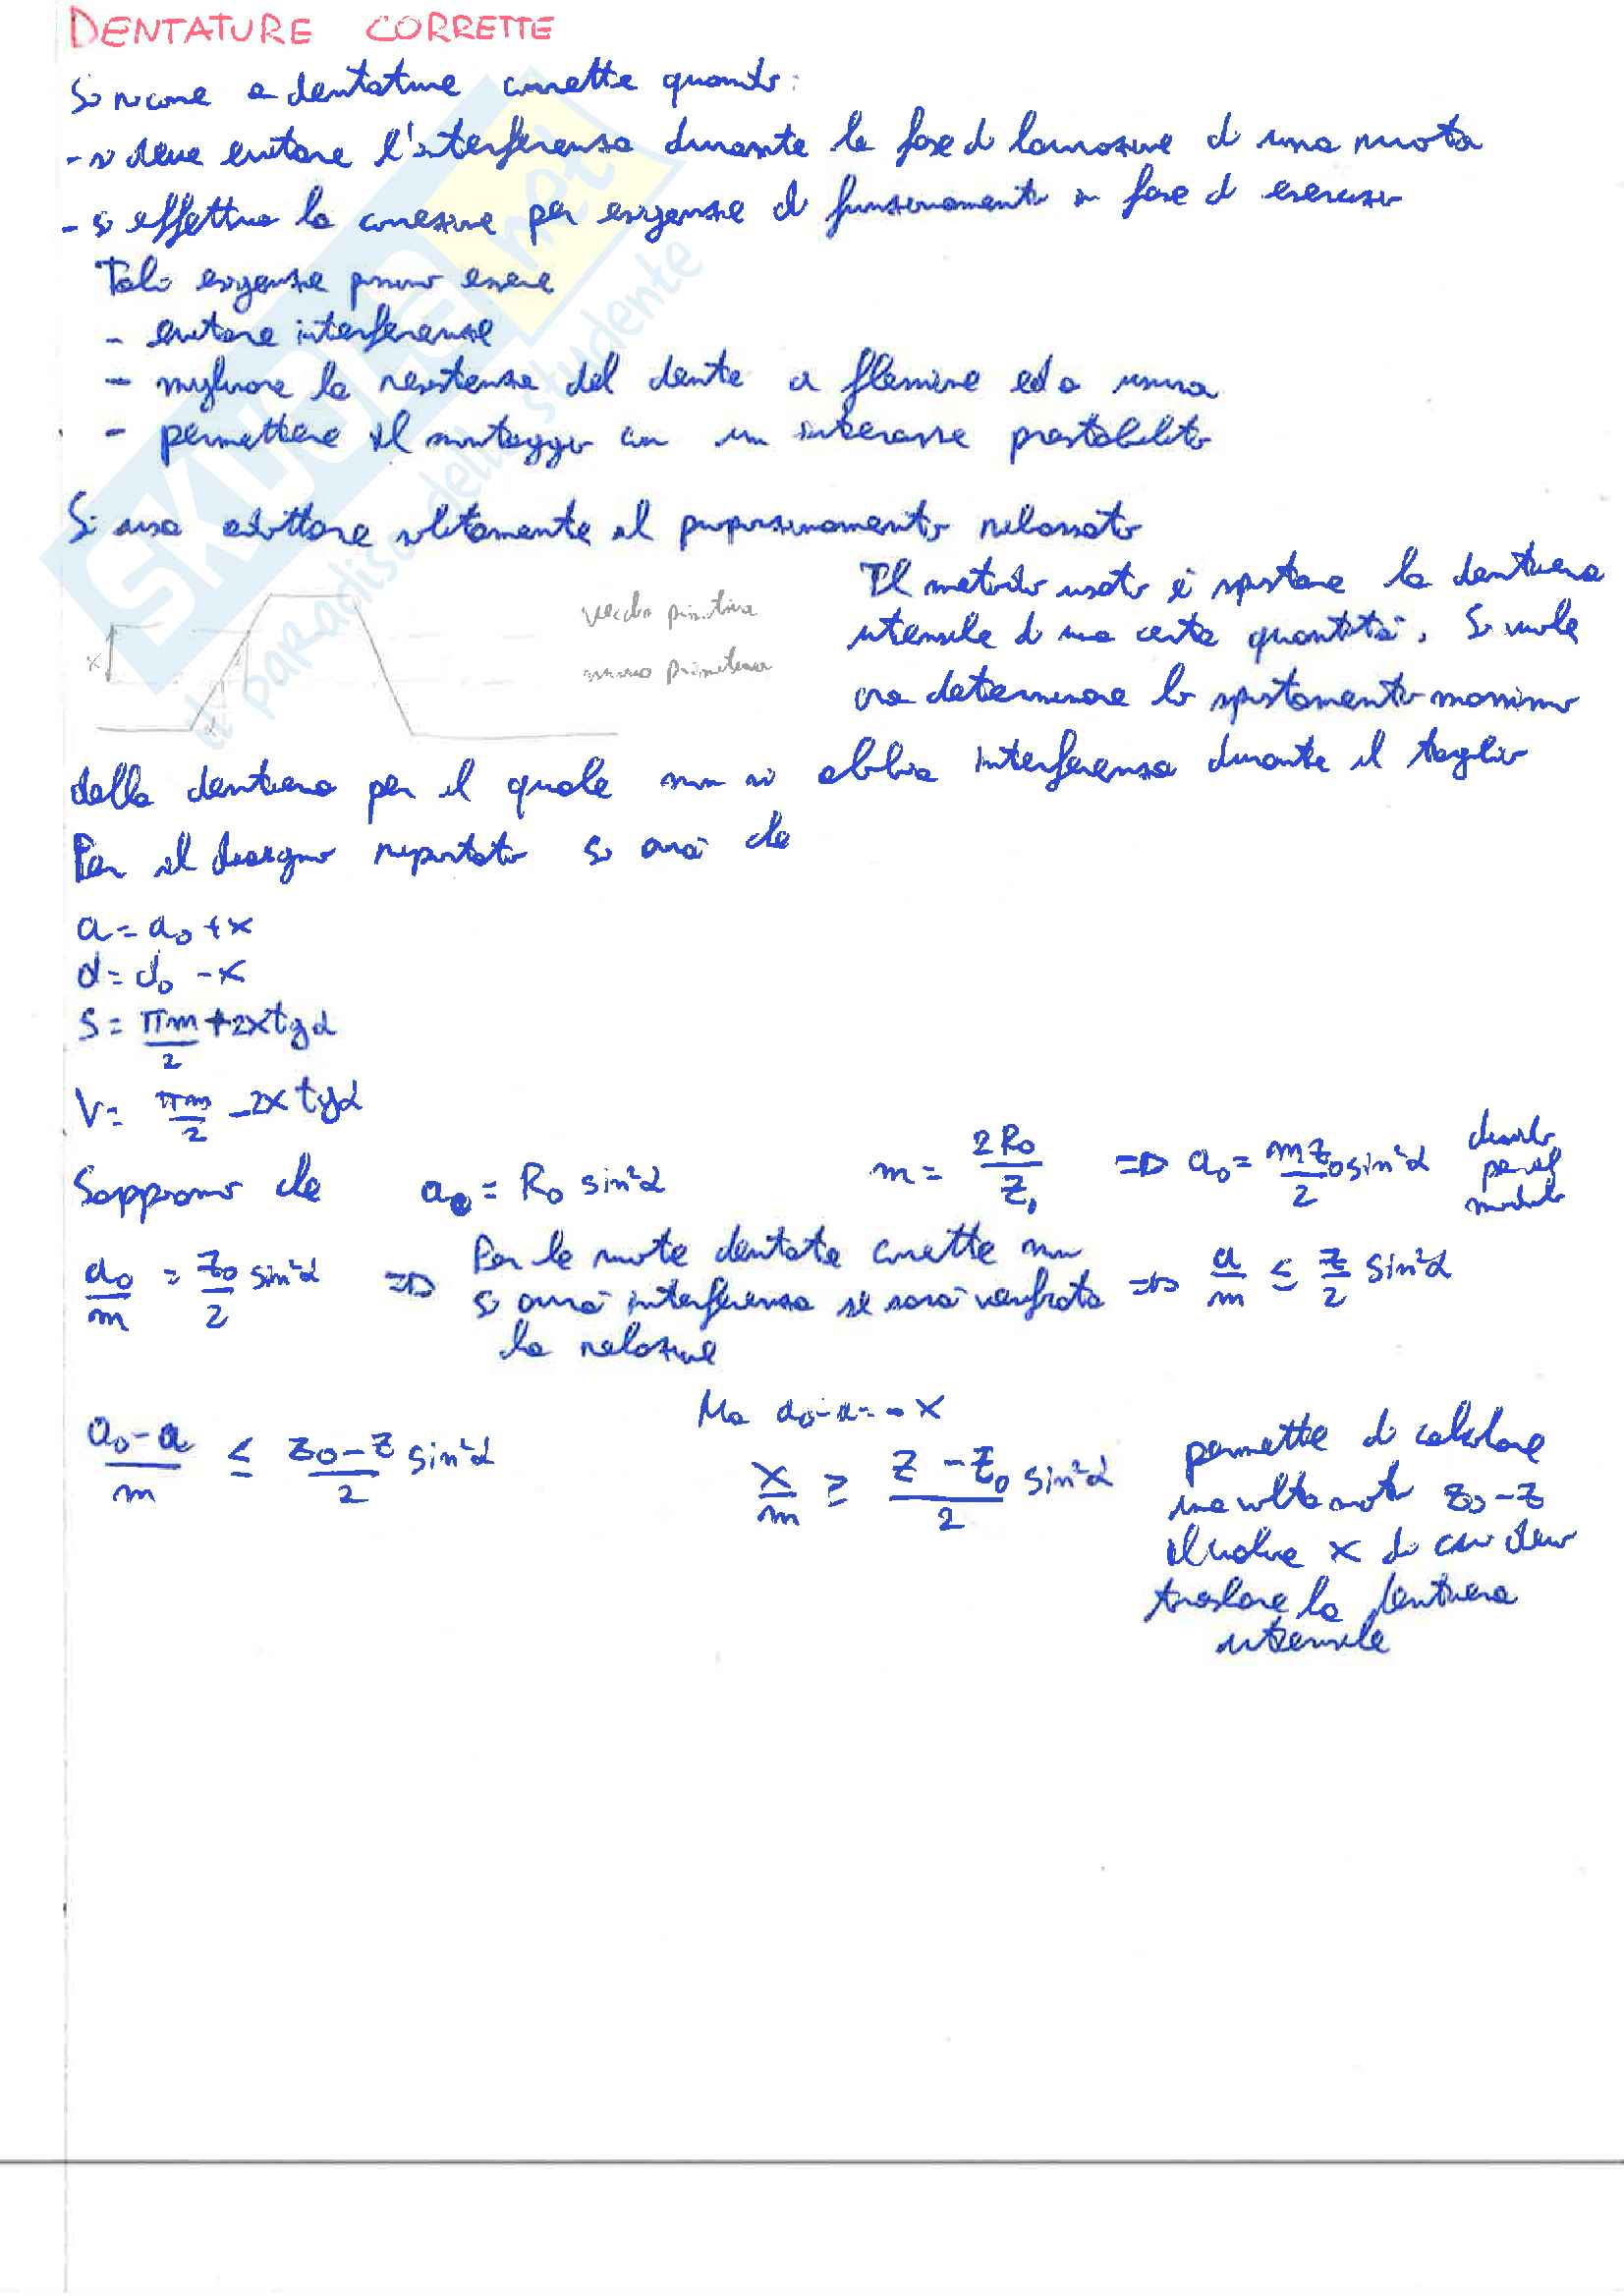 DENTATURE CORRETTE
Si ricorre a dentature corrette quando:
- si deve evitare l'interferenza durante la fase di lavorazione di una ruota
- si effettua la correzione per esigenze di funzionamento in fase di esercizio
Tali esigenze possono essere
- evitare interferenze
- migliorare la resistenza del dente a flessione ed a usura
- permettere il montaggio con un interasse prestabilito
Si usa adottare solitamente il proporzionamento ribassato
Il metodo usato è spostare la dentiera
vecchia primitiva
utensile di una certa quantità. Si vuole
x
nuova primitiva
ora determinare lo spostamento massimo
α
della dentiera per il quale non si abbia interferenza durante il taglio
Per il disegno riportato si avrà che
a = a₀ + x
d = d₀ - x
S = πm/2 + 2x tgα
V = πm/2 - 2x tgα
Sappiamo che a₀ = R₀ sin²α m = 2R₀/Z₀ => a₀ = mz₀/2 sin²α divido per il modulo
a₀/m = z₀/2 sin²α => Per le ruote dentate corrette non
si avrà interferenza se sarà verificata => a/m ≤ z/2 sin²α
la relazione
Ma a₀-a = -x
a₀-a/m ≤ z₀-z/2 sin²α x/m ≥ z-z₀/2 sin²α permette di calcolare
una volta noto z₀-z
il valore x di cui devo
traslare la dentiera
utensile
SKUOLA.net
il paradiso dello studente